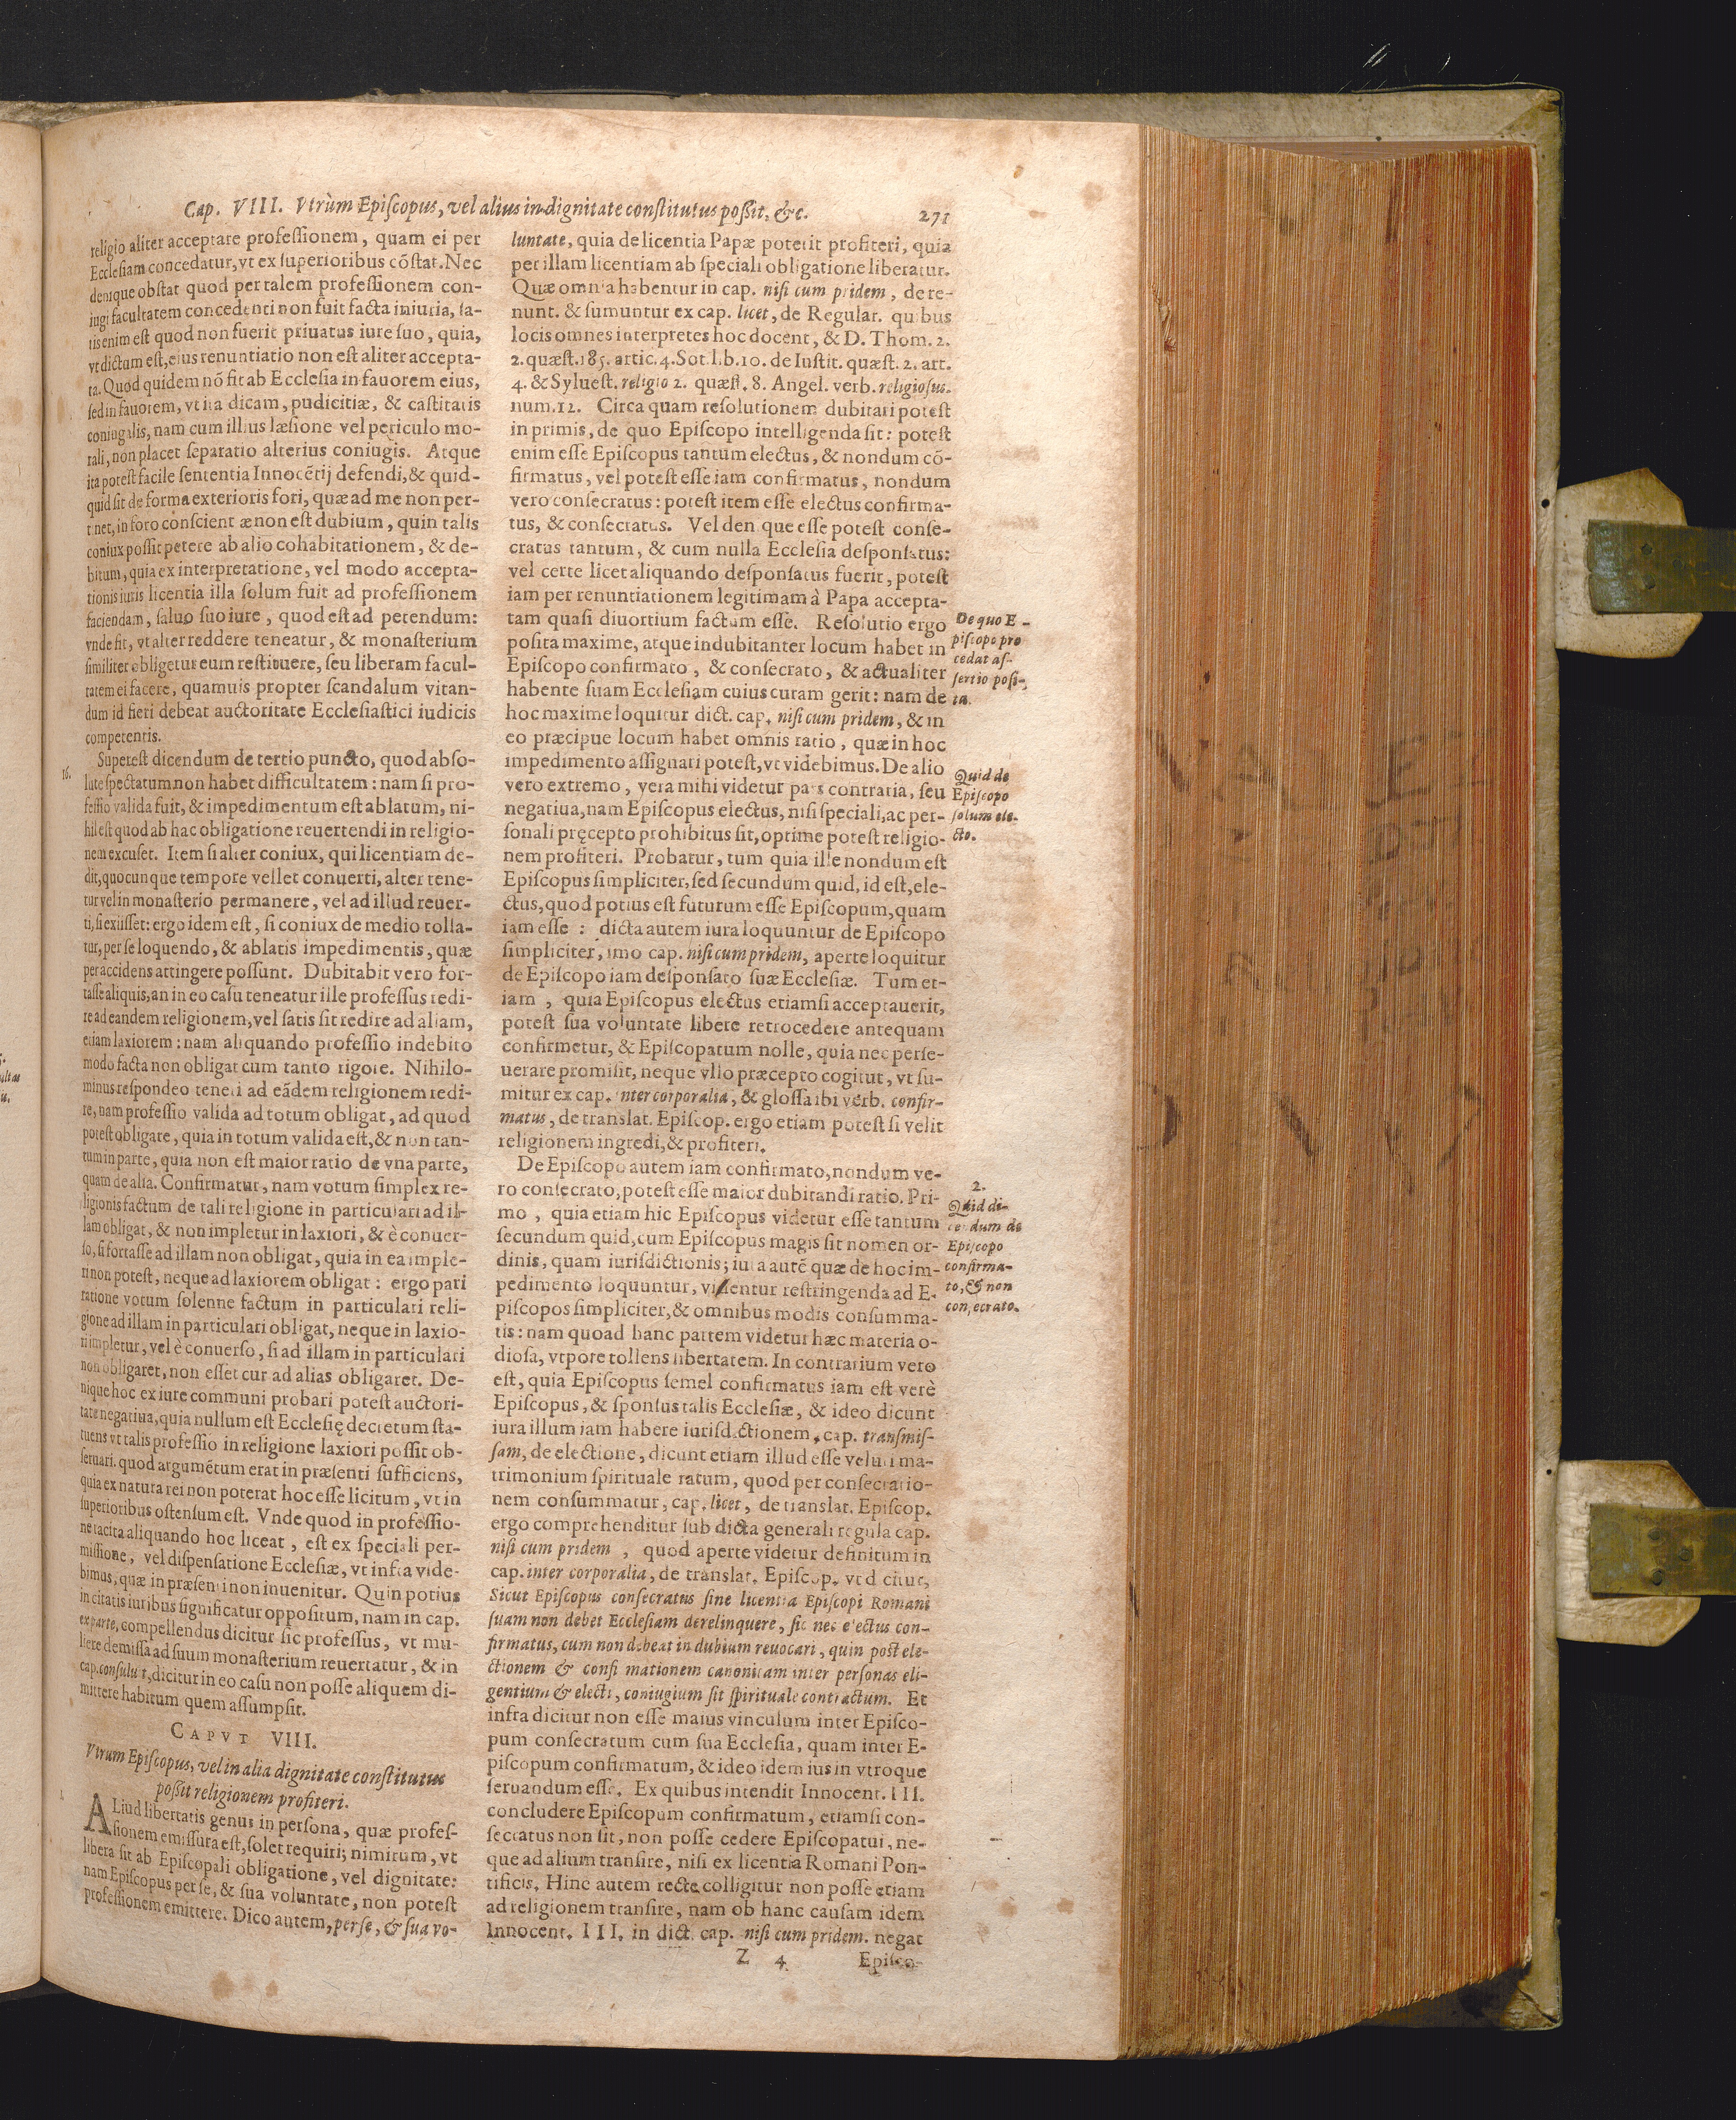 Cap. VIII. Vtrùm Episcopus, vel alius in dignitate constitutus possit, &c. 271
religio aliter acceptare professionem, quam ei per
Ecclesiam concedatur, vt ex superioribus cõstat. Nec
denique obstat quod per talem professionem con-
iugi facultatem concedenti non fuit facta iniuria, sa-
tis enim est quod non fuerit priuatus iure suo, quia,
vt dictum est, eius renuntiatio non est aliter accepta-
ta. Quod quidem nõ fit ab Ecclesia in fauorem eius,
sed in fauorem, vt ita dicam, pudicitiæ, & castitatis
coniugalis, nam cum illius læsione vel periculo mo-
rali, non placet separatio alterius coniugis. Atque
ita potest facile sententia Innocẽtij defendi, & quid-
quid sit de forma exterioris fori, quæ ad me non per-
tinet, in foro conscient æ non est dubium, quin talis
coniux possit petere ab alio cohabitationem, & de-
bitum, quia ex interpretatione, vel modo accepta-
tionis iuris licentia illa solum fuit ad professionem
faciendam, saluo suo iure, quod est ad petendum:
vnde fit, vt alter reddere teneatur, & monasterium
similiter obligetur eum restituere, seu liberam facul-
tatem ei facere, quamuis propter scandalum vitan-
dum id fieri debeat auctoritate Ecclesiastici iudicis
competentis.
16.
Superest dicendum de tertio puncto, quod abso-
lute spectatum non habet difficultatem: nam si pro-
fessio valida fuit, & impedimentum est ablatum, ni-
hil est quod ab hac obligatione reuertendi in religio-
nem excuset. Item si alter coniux, qui licentiam de-
dit, quocunque tempore vellet conuerti, alter tene-
tur vel in monasterio permanere, vel ad illud reuer-
ti, si exiisset: ergo idem est, si coniux de medio tolla-
tur, per se loquendo, & ablatis impedimentis, quæ
per accidens attingere possunt. Dubitabit vero for-
tasse aliquis, an in eo casu teneatur ille professus redi-
re ad eandem religionem, vel satis sit redire ad aliam,
etiam laxiorem: nam aliquando professio indebito
modo facta non obligat cum tanto rigore. Nihilo-
minus respondeo teneri ad eãdem religionem redi-
re, nam professio valida ad totum obligat, ad quod
potest obligare, quia in totum valida est, & non tan-
tum in parte, quia non est maior ratio de vna parte,
quam de alia. Confirmatur, nam votum simplex re-
ligionis factum de tali religione in particulari ad il-
lam obligat, & non impletur in laxiori, & è conuer-
so, si fortasse ad illam non obligat, quia in ea imple-
ri non potest, neque ad laxiorem obligat: ergo pari
ratione votum solenne factum in particulari reli-
gione ad illam in particulari obligat, neque in laxio-
ri impletur, vel è conuerso, si ad illam in particulari
non obligaret, non esset cur ad alias obligaret. De-
nique hoc ex iure communi probari potest auctori-
tate negatiua, quia nullum est Ecclesię decretum sta-
tuens vt talis professio in religione laxiori possit ob-
seruari. quod argumẽtum erat in præsenti sufficiens,
quia ex natura rei non poterat hoc esse licitum, vt in
superioribus ostensum est. Vnde quod in professio-
ne tacita aliquando hoc liceat, est ex speciali per-
missione, vel dispensatione Ecclesiæ, vt infra vide-
bimus, quæ in præsenti non inuenitur. Quin potius
in citatis iuribus significatur oppositum, nam in cap.
ex parte, compellendus dicitur sic professus, vt mu-
liere demissa ad suum monasterium reuertatur, & in
cap. consuluit, dicitur in eo casu non posse aliquem di-
mittere habitum quem assumpsit.
CAPVT VIII.
Vtrum Episcopus, vel in alia dignitate constitutus
possit religionem profiteri.
1.
ALiud libertatis genus in persona, quæ profes-
sionem emissura est, solet requiri; nimirum, vt
libera sit ab Episcopali obligatione, vel dignitate:
nam Episcopus per se, & sua voluntate, non potest
professionem emittere. Dico autem, per se, & sua vo-
luntate, quia de licentia Papæ poterit profiteri, quia
per illam licentiam ab speciali obligatione liberatur.
Quæ omnia habentur in cap. nisi cum pridem, de re-
nunt. & sumuntur ex cap. licet, de Regular. quibus
locis omnes interpretes hoc docent, & D. Thom. 2.
2. quæst. 185. artic. 4. Sot. lib. 10. de Iustit. quæst. 2. art.
4. & Syluest. religio 2. quæst. 8. Angel. verb. religiosus.
num. 12. Circa quam resolutionem dubitari potest
in primis, de quo Episcopo intelligenda sit: potest
enim esse Episcopus tantum electus, & nondum cõ-
firmatus, vel potest esse iam confirmatus, nondum
vero consecratus: potest item esse electus confirma-
tus, & consecratus. Vel den que esse potest conse-
cratus tantum, & cum nulla Ecclesia desponsatus:
vel certe licet aliquando desponsatus fuerit, potest
iam per renuntiationem legitimam à Papa accepta-
tam quasi diuortium factum esse. Resolutio ergo
posita maxime, atque indubitanter locum habet in
Episcopo confirmato, & consecrato, & actualiter
habente suam Ecclesiam cuius curam gerit: nam de
hoc maxime loquitur dict. cap. nisi cum pridem, & in
eo præcipue locum habet omnis ratio, quæ in hoc
impedimento assignari potest, vt videbimus. De alio
vero extremo, vera mihi videtur pars contraria, seu
negatiua, nam Episcopus electus, nisi speciali, ac per-
sonali pręcepto prohibitus sit, optime potest religio-
nem profiteri. Probatur, tum quia ille nondum est
Episcopus simpliciter, sed secundum quid, id est, ele-
ctus, quod potius est futurum esse Episcopum, quam
iam esse: dicta autem iura loquuntur de Episcopo
simpliciter, imo cap. nisi cum pridem, aperte loquitur
de Episcopo iam desponsato suæ Ecclesiæ. Tum et-
iam, quia Episcopus electus etiamsi acceptauerit,
potest sua voluntate libere retrocedere antequam
confirmetur, & Episcopatum nolle, quia nec perse-
uerare promisit, neque vllo præcepto cogitur, vt su-
mitur ex cap. inter corporalia, & glossa ibi verb. confir-
matus, de translat. Episcop. ergo etiam potest si velit
religionem ingredi, & profiteri.
De Episcopo autem iam confirmato, nondum ve-
ro consecrato, potest esse maior dubitandi ratio. Pri-
mo, quia etiam hic Episcopus videtur esse tantum
secundum quid, cum Episcopus magis sit nomen or-
dinis, quam iurisdictionis; iura autẽ quæ de hoc im-
pedimento loquuntur, videntur restringenda ad E-
piscopos simpliciter, & omnibus modis consumma-
tis: nam quoad hanc partem videtur hæc materia o-
diosa, vtpote tollens libertatem. In contrarium vero
est, quia Episcopus semel confirmatus iam est verè
Episcopus, & sponsus talis Ecclesiæ, & ideo dicunt
iura illum iam habere iurisdictionem, cap. transmis-
sam, de electione, dicunt etiam illud esse veluti ma-
trimonium spirituale ratum, quod per consecratio-
nem consummatur, cap. licet, de translat. Episcop.
ergo comprehenditur sub dicta generali regula cap.
nisi cum pridem, quod aperte videtur definitum in
cap. inter corporalia, de translat. Episcop. vbi dicitur,
Sicut Episcopus consecratus sine licentia Episcopi Romani
suam non debet Ecclesiam derelinquere, sic nec electus con-
firmatus, cum non debeat in dubium reuocari, quin post ele-
ctionem & confi mationem canonicam inter personas eli-
gentium & electi, coniugium sit spirituale contractum. Et
infra dicitur non esse maius vinculum inter Episco-
pum consecratum cum sua Ecclesia, quam inter E-
piscopum confirmatum, & ideo idem ius in vtroque
seruandum esse. Ex quibus intendit Innocent. III.
concludere Episcopum confirmatum, etiamsi con-
secratus non sit, non posse cedere Episcopatui, ne-
que ad alium transire, nisi ex licentia Romani Pon-
tificis. Hinc autem recte colligitur non posse etiam
ad religionem transire, nam ob hanc causam idem
Innocent. III. in dict. cap. nisi cum pridem. negat
Z 4 Episco-
De quo E-
piscopo pro
cedat as-
sertio posi-
ta.
Quid de
Episcopo
solum ele-
cto.
2.
Quid di-
cendum de
Episcopo
confirma-
to, & non
consecrato.